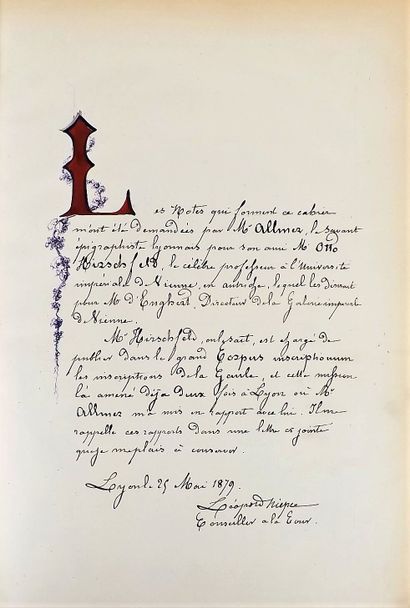 Les Notes qui forment ce cahier
m'ont été demandées par Mr Allmer, le savant
épigraphiste lyonnais pour son ami Mr Otto
Hirschfeld, le célèbre professeur à l'Université
impériale de Vienne, en Autriche, lequel les désirait
pour Mr d'Enghert Directeur de la Galerie impériale
de Vienne.
Mr Hirschfeld, on le sait, est chargé de
publier dans le grand Corpus inscriptionum
les inscriptions de la Gaule, et cette mission
l'a amené déjà deux fois à Lyon où Mr
Allmer m'a mis en rapport avec lui. Il me
rappelle ces rapports dans une lettre ci jointe
que je me plais à conserver.
Lyon le 25 Mai 1879.
Léopold Niepce
Conseiller à la Cour.